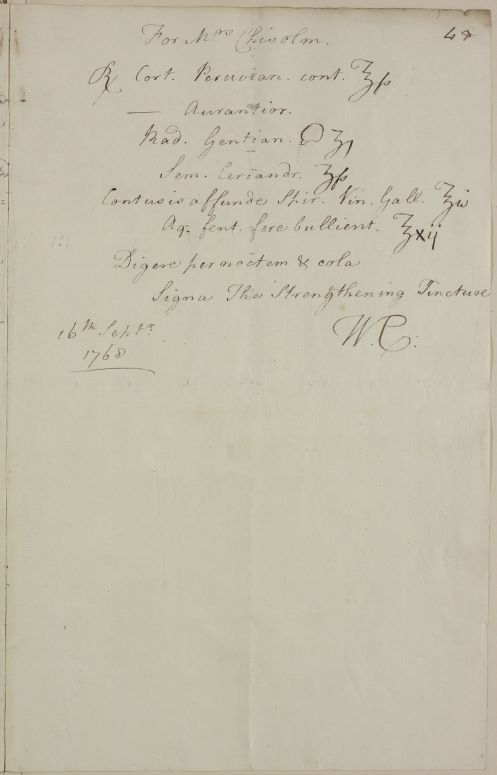 48
For Mrs Chisolm.
℞ Cort. Peruvian. cont. ℥ß
— Aurantior.
Rad. Gentian. ʒj
Sem. Coriandr. ʒß
Contusis affunde Spir. Vin. Gall. ℥ij
Aq. font. fere bullient. ℥xij
Digere per noctem & cola
Signa The Strengthening Tincture
W. C:
16th Septr
1768